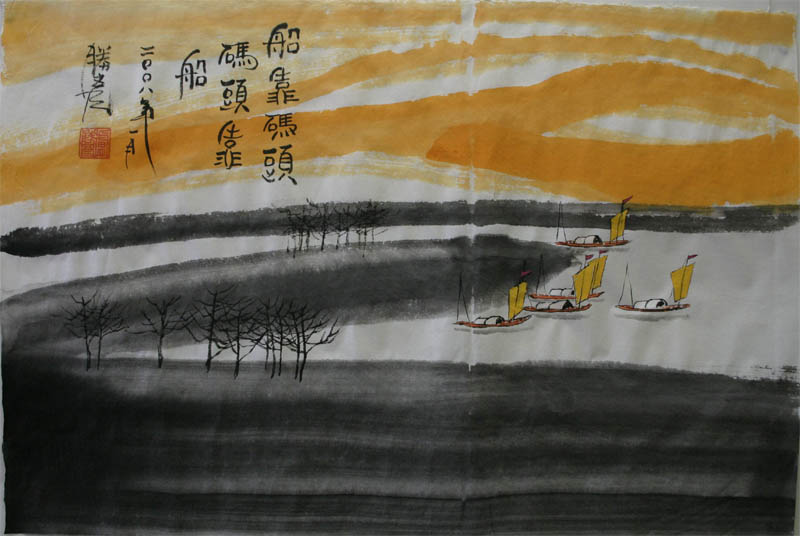 船靠碼頭
碼頭靠
船
二〇〇八年一月